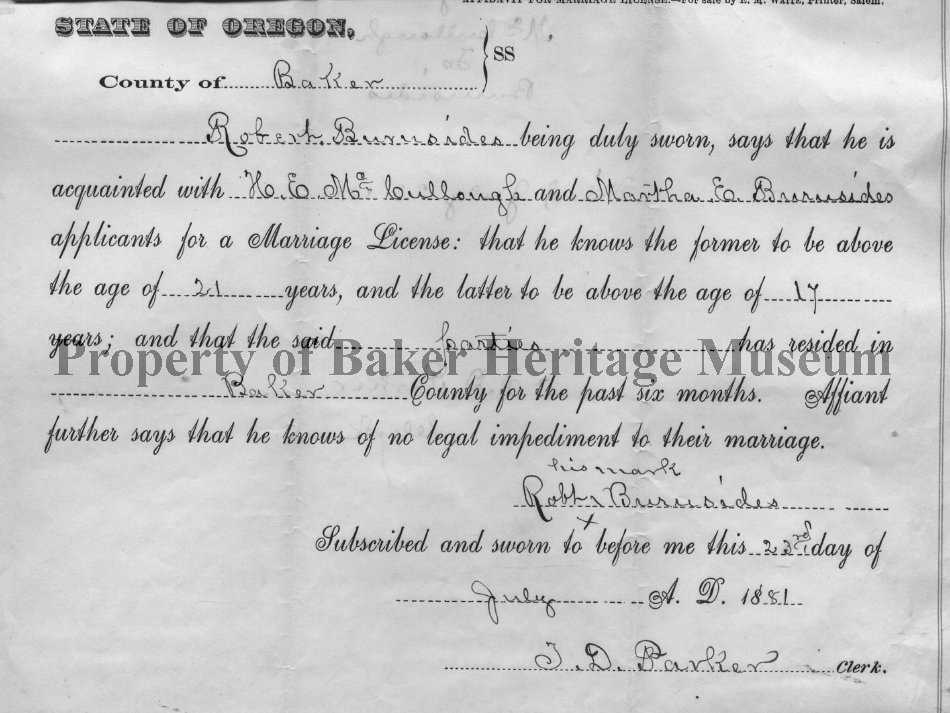 AFFIDAVIT FOR MARRIAGE LICENSE.—For sale by E. M. Waite, Printer, Salem.
STATE OF OREGON,
SS
County of Baker
Robert Burnsides being duly sworn, says that he is
acquainted with H. E. McCullough and Martha E. Burnsides
applicants for a Marriage License: that he knows the former to be above
the age of 21 years, and the latter to be above the age of 17
years; and that the said parties has resided in
Property of Baker Heritage Museum
Baker County for the past six months. Affiant
further says that he knows of no legal impediment to their marriage.
his mark
Robt Burnsides
x
Subscribed and sworn to before me this 23rd day of
July A. D. 1881
T. D. Parker Clerk.